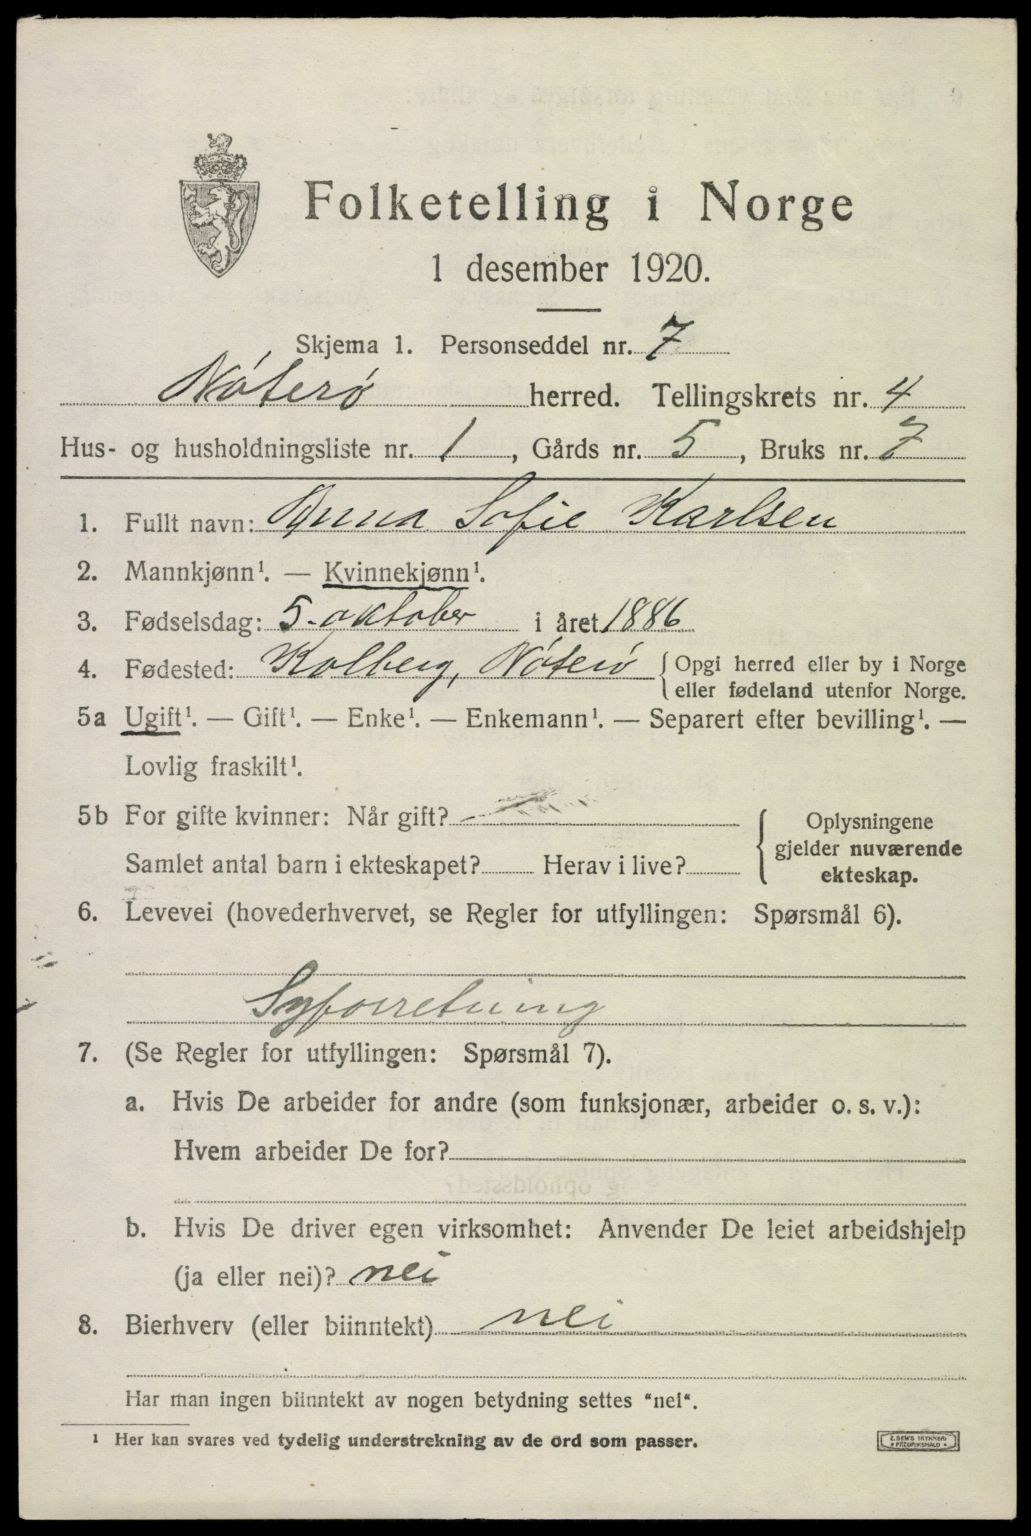 Folketelling i Norge
1 desember 1920.
Skjema 1. Personseddel nr. 7
Nøterø herred. Tellingskrets nr. 4
Hus- og husholdningsliste nr. 1, Gårds nr. 5, Bruks nr. 7
1. Fullt navn: Anna Sofie Karlsen
2. Mannkjønn¹. — Kvinnekjønn¹.
3. Fødselsdag: 5. oktober i året 1886
4. Fødested: Kolberg, Nøterø {Opgi herred eller by i Norge
eller fødeland utenfor Norge.
5a Ugift¹. — Gift¹. — Enke¹. — Enkemann¹. — Separert efter bevilling¹. —
Lovlig fraskilt¹.
5b For gifte kvinner: Når gift?
Samlet antal barn i ekteskapet? Herav i live?
{Oplysningene
gjelder nuværende
ekteskap.
6. Levevei (hovederhvervet, se Regler for utfyllingen: Spørsmål 6).
Syforretning
7. (Se Regler for utfyllingen: Spørsmål 7).
a. Hvis De arbeider for andre (som funksjonær, arbeider o. s. v.):
Hvem arbeider De for?
b. Hvis De driver egen virksomhet: Anvender De leiet arbeidshjelp
(ja eller nei)? nei
8. Bierhverv (eller biinntekt) nei
Har man ingen biinntekt av nogen betydning settes "nei".
¹ Her kan svares ved tydelig understrekning av de ord som passer.